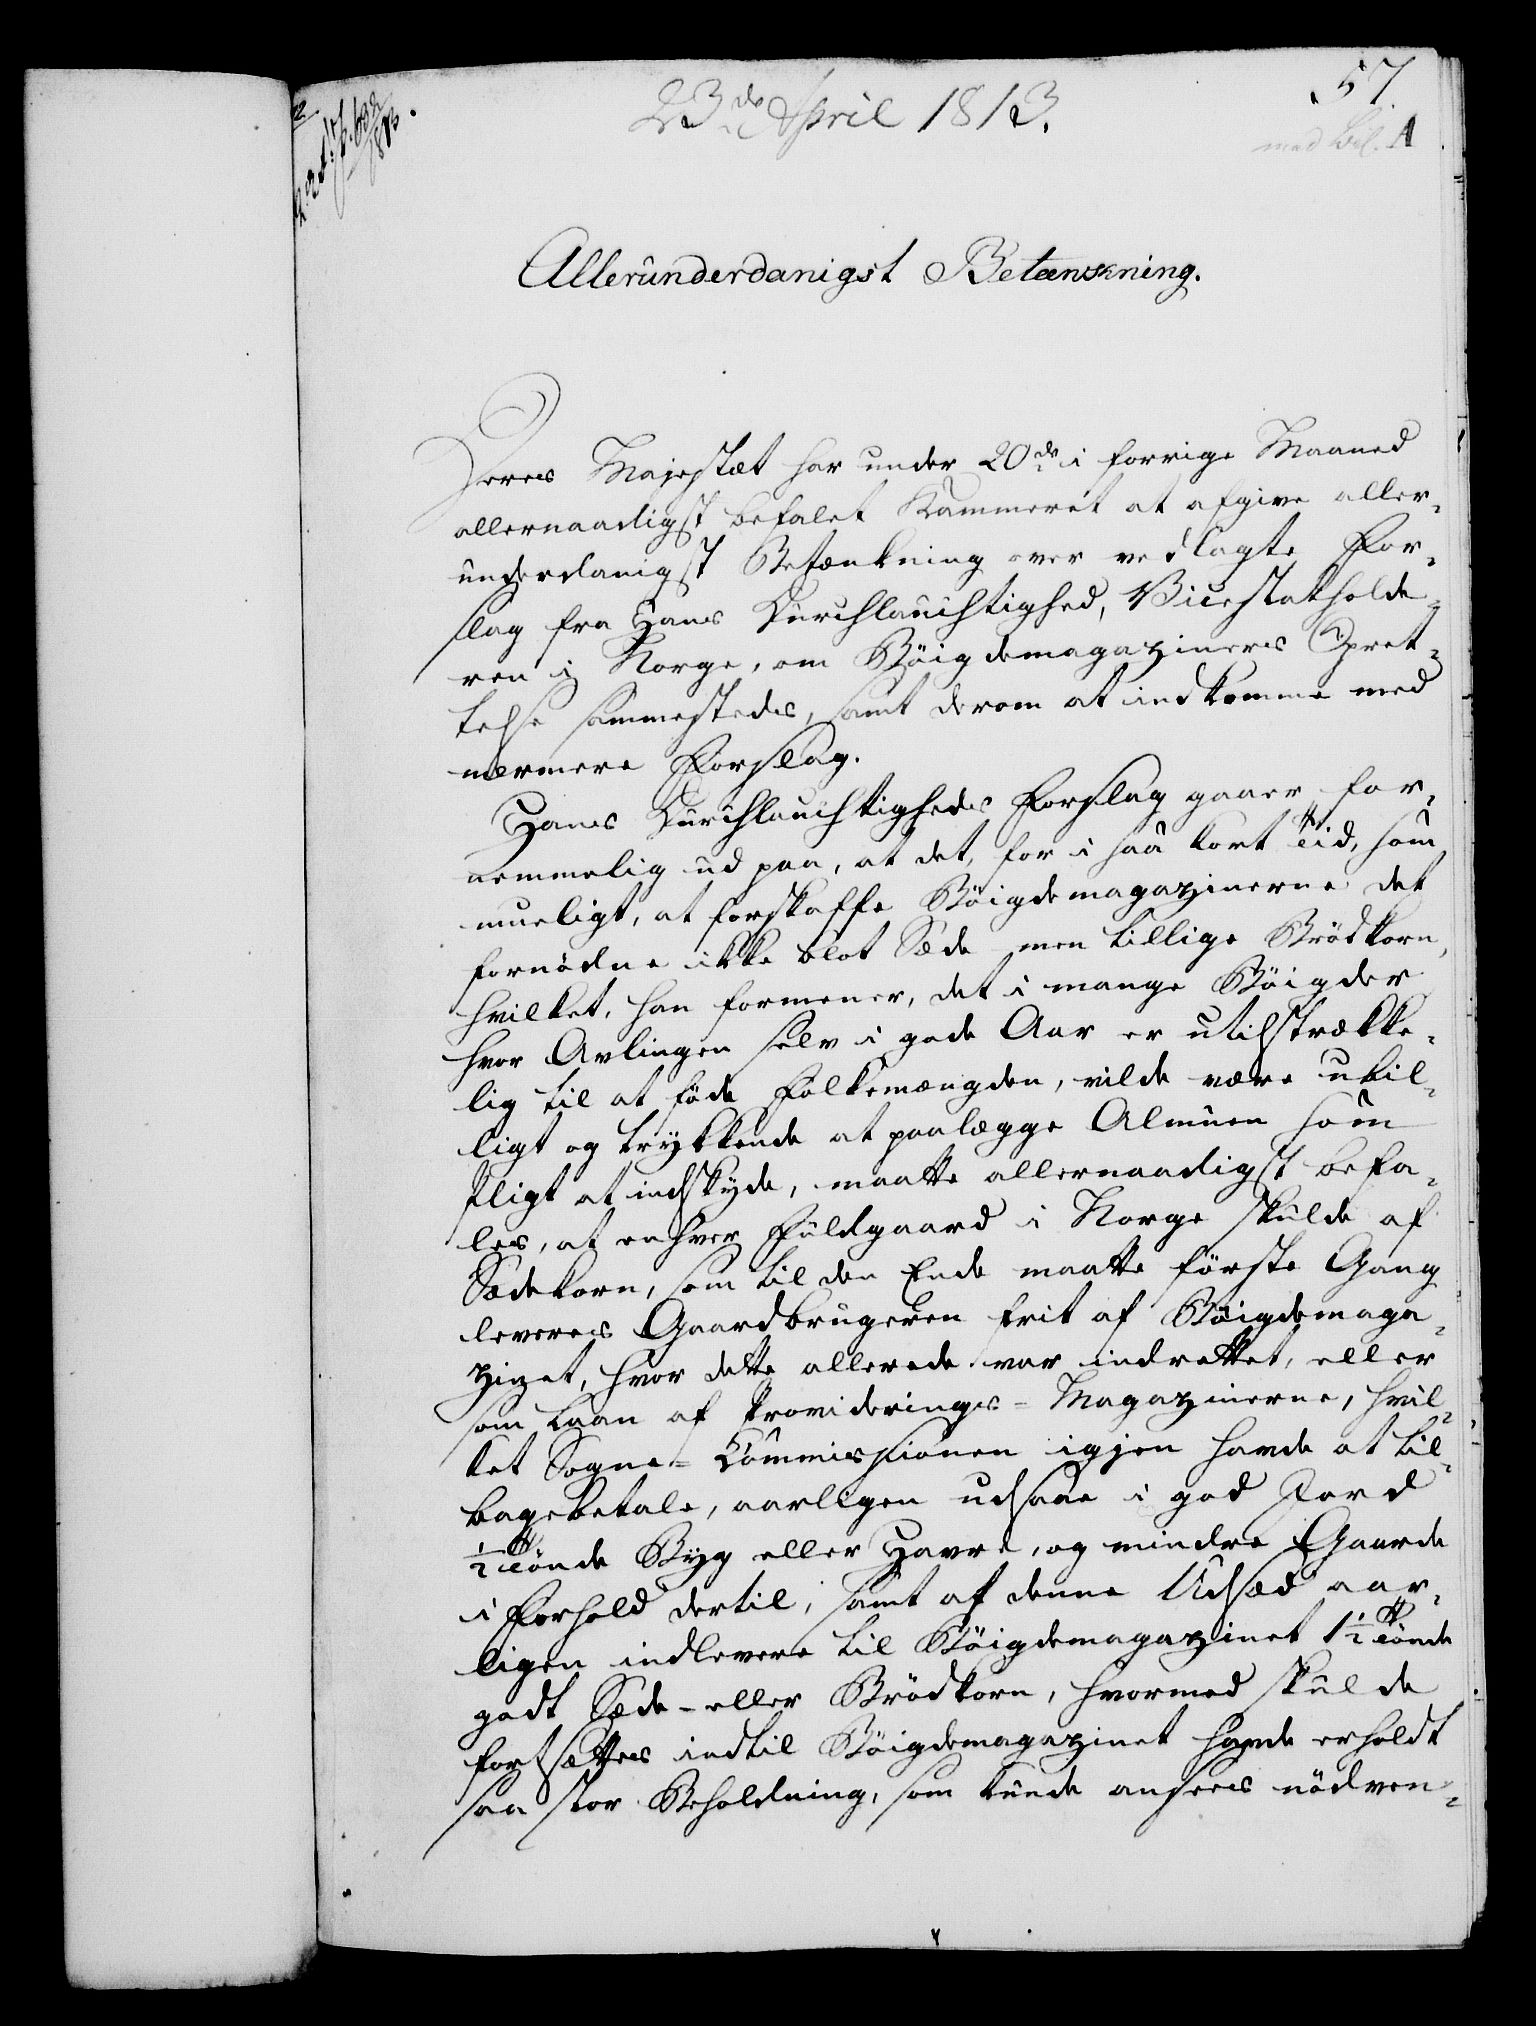 57.
23de April 1813.
med Bil. A
632
1813.
Allerunderdanigst Betænkning.
Deres Majestæt har under 20de i forrige Maaned
allernaadigst befalet Kammeret at afgive aller-
underdanigst Betænkning over vedlagte For-
slag fra Hans Durchlauchtighed, Vicestatholde-
ren i Norge, om Böigdemagaziners Opret-
telse sammestedes, samt derom at indkomme med
nærmere Forslag.
Hans Durchlauchtigheds Forslag gaaer for-
nemmelig ud paa, at det, for i saa kort Tid, som
mueligt, at forskaffe Böigdemagazinerne det
fornödne ikke blot Sæde men tillige Brödkorn,
hvilket, han formener, det i mange Böigder
hvor Avlingen selv i gode Aar er utilstrække-
lig til at föde Folkemængden, vilde være ubil-
ligt og trykkende at paalægge Almuen som
Pligt at indskyde, maatte allernaadigst befa-
les, at enhver Fuldgaard i Norge skulde af
Sædekorn, som til den Ende maatte förste Gang
leveres Gaardbrugeren frit af Böigdemaga-
zinet, hvor dette allerede var indrettet, eller
som Laan af Provideringes-Magazinerne, hvil-
ket Sogne-Commissionen igjen havde at til-
bagebetale, aarligen udsaae i god Jord
1/2 Tönde Byg eller Havre, og mindre Gaarde
i Forhold dertil, samt af denne Udsæd aar-
ligen indlevere til Böigdemagazinet 1 1/2 Tönde
godt Sæde- eller Brödkorn, hvormed skulde
fortsættes indtil Böigdemagazinet havde erholdt
saa stor Beholdning, som kunde ansees nödven-